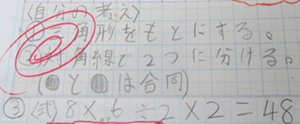 〈自分の考え〉
①三角形をもとにする。
②対角線で2つに分ける。
(●と●は合同)
③(式) 8×6÷2×2=48